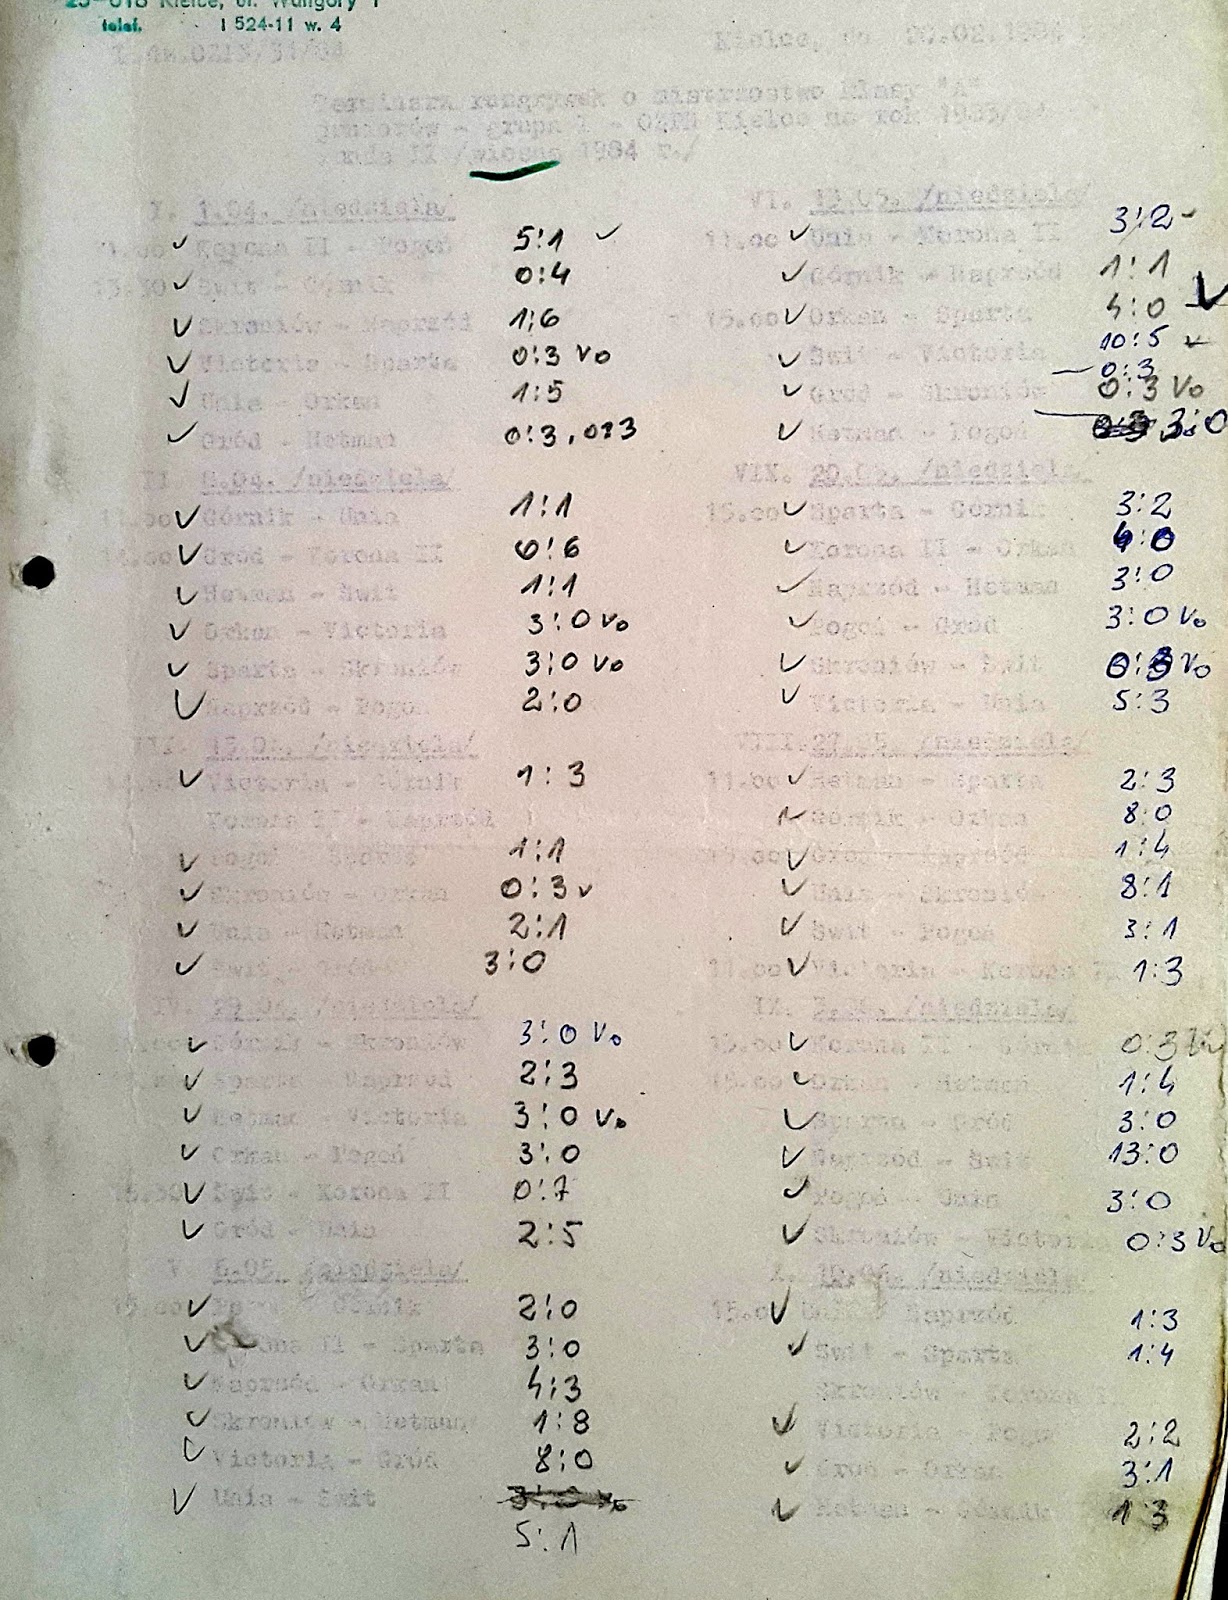 25-018 Kielce, ul. Wandory 1
telef. 524-11 w. 4
Kielce, 02.1984
Terminarz rozgrywek o mistrzostwo klasy "A"
juniorów - grupa I - OZPN Kielce na rok 1983/84
runda II /wiosna 1984 r./
I. 1.04. /niedziela/
11.00 Korona II - Pogoń 5:1
Świt - Górnik 0:4
Skroniów - Naprzód 1:6
Victoria - Sparta 0:3 vo
Unia - Orkan 1:5
Gród - Hetman 0:3, 0:3
II. 8.04. /niedziela/
11.00 Górnik - Unia 1:1
Gród - Korona II 0:6
Hetman - Świt 1:1
Orkan - Victoria 3:0 vo
Sparta - Skroniów 3:0 vo
Naprzód - Pogoń 2:0
III. 15.04. /niedziela/
Victoria - Górnik 1:3
Korona II - Naprzód
Pogoń - Sparta 1:1
Skroniów - Orkan 0:3 v
Unia - Hetman 2:1
Świt - Gród 3:0
IV. 29.04. /niedziela/
Górnik - Skroniów 3:0 vo
Sparta - Naprzód 2:3
Hetman - Victoria 3:0 vo
Orkan - Pogoń 3:0
Świt - Korona II 0:7
Gród - Unia 2:5
V. 6.05. /niedziela/
Górnik 2:0
Korona II - Sparta 3:0
Naprzód - Orkan 4:3
Skroniów - Hetman 1:8
Victoria - Gród 8:0
Unia - Świt
5:1
VI. 13.05. /niedziela/
11.00 Unia - Korona II 3:2
Górnik - Naprzód 1:1
15.00 Orkan - Sparta 4:0
Świt - Victoria 10:5
0:3
Gród - Skroniów 0:3 vo
Hetman - Pogoń 3:0
VII. 20.05. /niedziela/
15.00 Sparta - Górnik 3:2
Korona II - Orkan 4:0
Naprzód - Hetman 3:0
Pogoń - Gród 3:0 vo
Skroniów - Świt 0:3 vo
Victoria - Unia 5:3
VIII. 27.05. /niedziela/
11.00 Hetman - Sparta 2:3
Górnik - Orkan 8:0
Gród - Naprzód 1:4
Unia - Skroniów 8:1
Świt - Pogoń 3:1
11.00 Victoria - Korona II 1:3
IX. 3.06. /niedziela/
15.00 Korona II - Górnik 0:3
15.00 Orkan - Hetman 1:4
Sparta - Gród 3:0
Naprzód - Świt 13:0
Pogoń - Unia 3:0
Skroniów - Victoria 0:3 vo
X. 10.06. /niedziela/
15.00 Unia - Naprzód 1:3
Świt - Sparta 1:4
Skroniów - Korona II
Victoria - Pogoń 2:2
Gród - Orkan 3:1
Hetman - Górnik 1:3